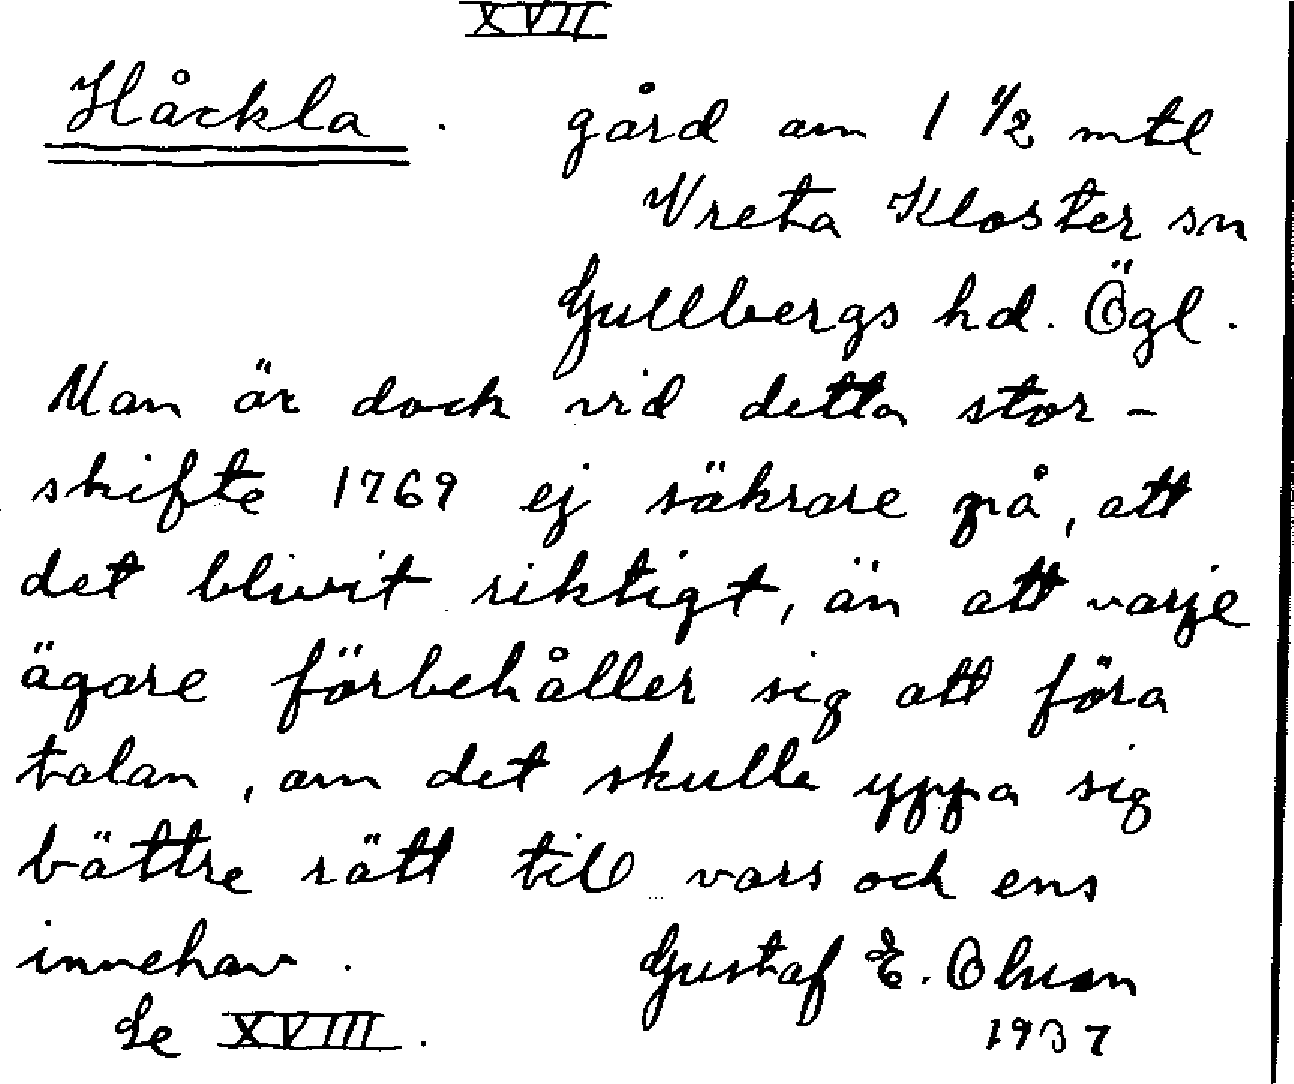 XVII
Håckla. gård om 1 1/2 mtl
Vreta Kloster sn
Gullbergs hd. Ögl.
Man är dock vid detta stor-
skifte 1769 ej säkrare på, att
det blivit riktigt, än att varje
ägare förbehåller sig att föra
talan, om det skulle yppa sig
bättre rätt till vars och ens
innehav.
Gustaf E. Olsson
Se XVIII.
1937